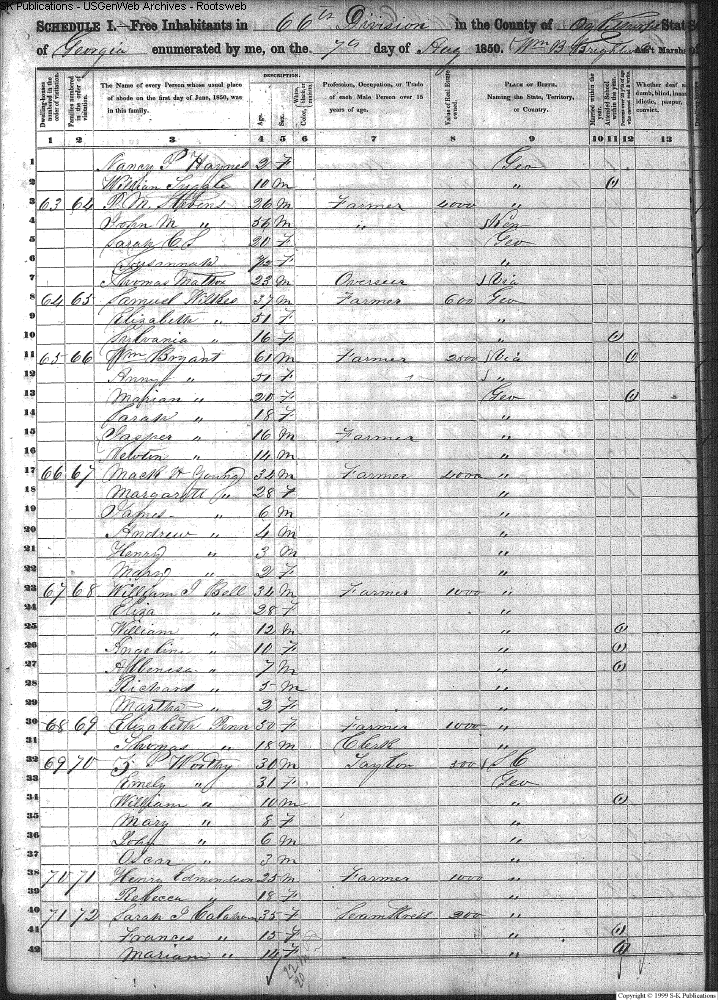 S-K Publications - USGenWeb Archives - Rootsweb
SCHEDULE I.—Free Inhabitants in 66th Division in the County of State
of Georgia enumerated by me, on the 7th day of Aug 1850. Wm B Ass't Marshal
DESCRIPTION.
Dwelling-houses numbered in the order of visitation. Families numbered in the order of visitation. The Name of every Person whose usual place of abode on the first day of June, 1850, was in this family. Age. Sex. Color, White, black, or mulatto. Profession, Occupation, or Trade of each Male Person over 15 years of age. Value of Real Estate owned. PLACE OF BIRTH. Naming the State, Territory, or Country. Married within the year. Attended School within the year. Whether deaf
1 2 3 4 5 6 7 8 9 10 11 12 13
1 Nancy P Haynes 2 F Geo
2 William Tuggle 10 M " (1)
3 63 64 26 M Farmer 4000 "
4 John M " 56 M " Ven
5 Sarah C S 20 F Geo
6 Susannah F "
7 Thomas 23 M Overseer Via
8 64 65 Samuel Wilkes 37 M Farmer 600 Geo
9 Elizabeth " 51 F "
10 Sylvania " 16 F " (1)
11 65 66 Wm Bryant 61 M Farmer 2500 Via (1)
12 Anny " 51 F "
13 Marian " 20 F Geo (1)
14 Sarah " 18 F "
15 Jasper " 16 M Farmer "
16 Newton " 14 M "
17 66 67 Mack H Young 34 M Farmer 4000 "
18 Margarett " 28 F "
19 James " 6 M "
20 Andrew " 4 M "
21 Henry " 3 M "
22 Mary " 2 F "
23 67 68 William J Bell 34 M Farmer 1000 "
24 Eliza " 28 F "
25 William " 12 M " (1)
26 Angeline " 10 F " (1)
27 " 7 M " (1)
28 Richard " 5 M "
29 Martha " 2 F "
30 68 69 Elizabeth Penn 50 F Farmer 1000 "
31 Thomas " 18 M Clerk "
32 69 70 J P Worthy 30 M Taylor 500 S C
33 Emely " 31 F Geo
34 William " 10 M " (1)
35 Mary " 8 F "
36 John " 6 M "
37 Oscar " 3 M "
38 70 71 Henry Edmondson 25 M Farmer 1000 "
39 Rebecca " 18 F "
40 71 72 Sarah J 35 F Seamstress 200 "
41 Frances " 15 F " (1)
42 Mariam " 14 F " (1)
Copyright © 1999 S-K Publications